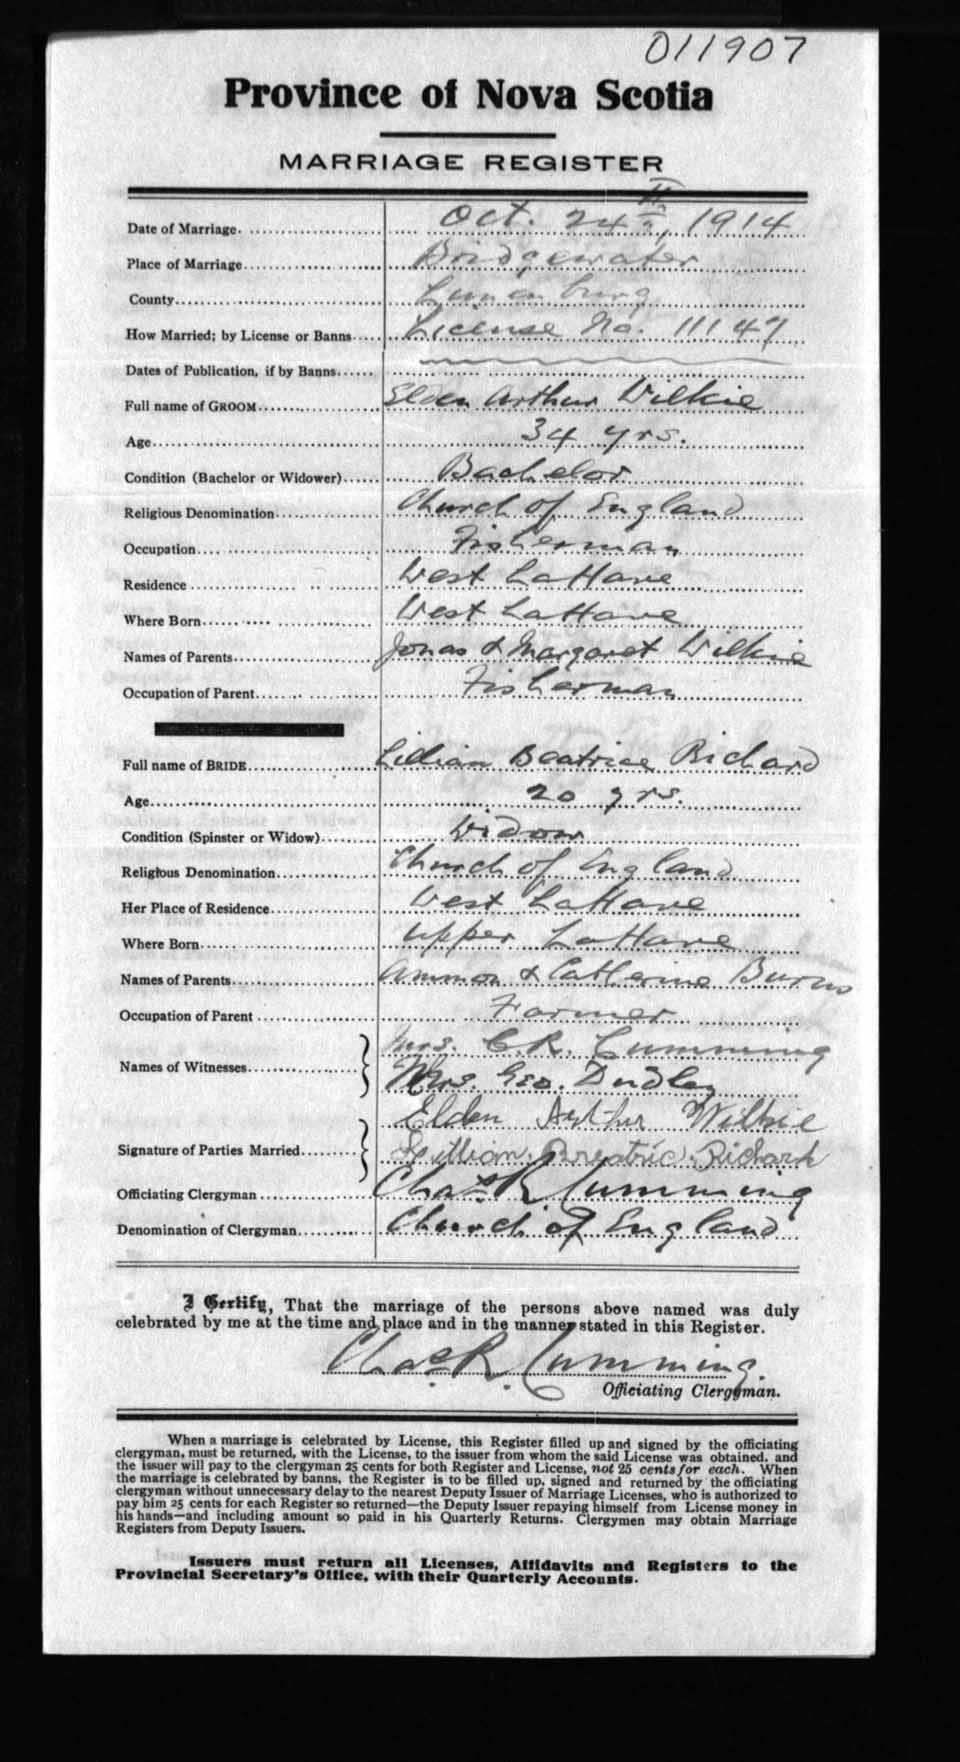 011907
Province of Nova Scotia
MARRIAGE REGISTER
Date of Marriage. Oct. 24th, 1914
Place of Marriage Bridgewater
County Lunenburg
How Married; by License or Banns License No. 11147
Dates of Publication, if by Banns
Full name of GROOM Elden Arthur Wilkie
Age 34 yrs.
Condition (Bachelor or Widower) Bachelor
Religious Denomination Church of England
Occupation Fisherman
Residence West LaHave
Where Born West LaHave
Names of Parents Jonas & Margaret Wilkie
Occupation of Parent Fisherman
Full name of BRIDE Lillian Beatrice Richard
Age 20 yrs.
Condition (Spinster or Widow) Widow
Religious Denomination Church of England
Her Place of Residence West LaHave
Where Born Upper LaHave
Names of Parents Ammon & Catherine Burns
Occupation of Parent Farmer
Names of Witnesses Mrs. C.R. Cumming
Mrs. Geo. Dudley
Elden Arthur Wilkie
Signature of Parties Married Lillian Richard
Officiating Clergyman Chas R Cumming
Denomination of Clergyman Church of England
I Certify, That the marriage of the persons above named was duly
celebrated by me at the time and place and in the manner stated in this Register.
Chas R. Cumming.
Officiating Clergyman.
When a marriage is celebrated by License, this Register filled up and signed by the officiating
clergyman, must be returned, with the License, to the issuer from whom the said License was obtained, and
the issuer will pay to the clergyman 25 cents for both Register and License, not 25 cents for each. When
the marriage is celebrated by banns, the Register is to be filled up, signed and returned by the officiating
clergyman without unnecessary delay to the nearest Deputy Issuer of Marriage Licenses, who is authorized to
pay him 25 cents for each Register so returned—the Deputy Issuer repaying himself from License money in
his hands—and including amount so paid in his Quarterly Returns. Clergymen may obtain Marriage
Registers from Deputy Issuers.
Issuers must return all Licenses, Affidavits and Registers to the
Provincial Secretary's Office, with their Quarterly Accounts.